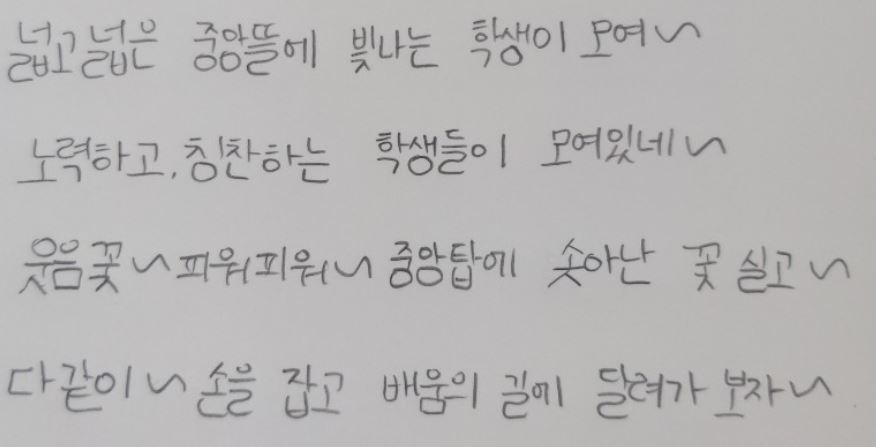 넓고 넓은 중앙뜰에 빛나는 학생이 모여~
노력하고, 칭찬하는 학생들이 모여있네~
웃음꽃~피워피워~중앙탑에 솟아난 꽃 실고~
다같이~손을 잡고 배움의 길에 달려가 보자~